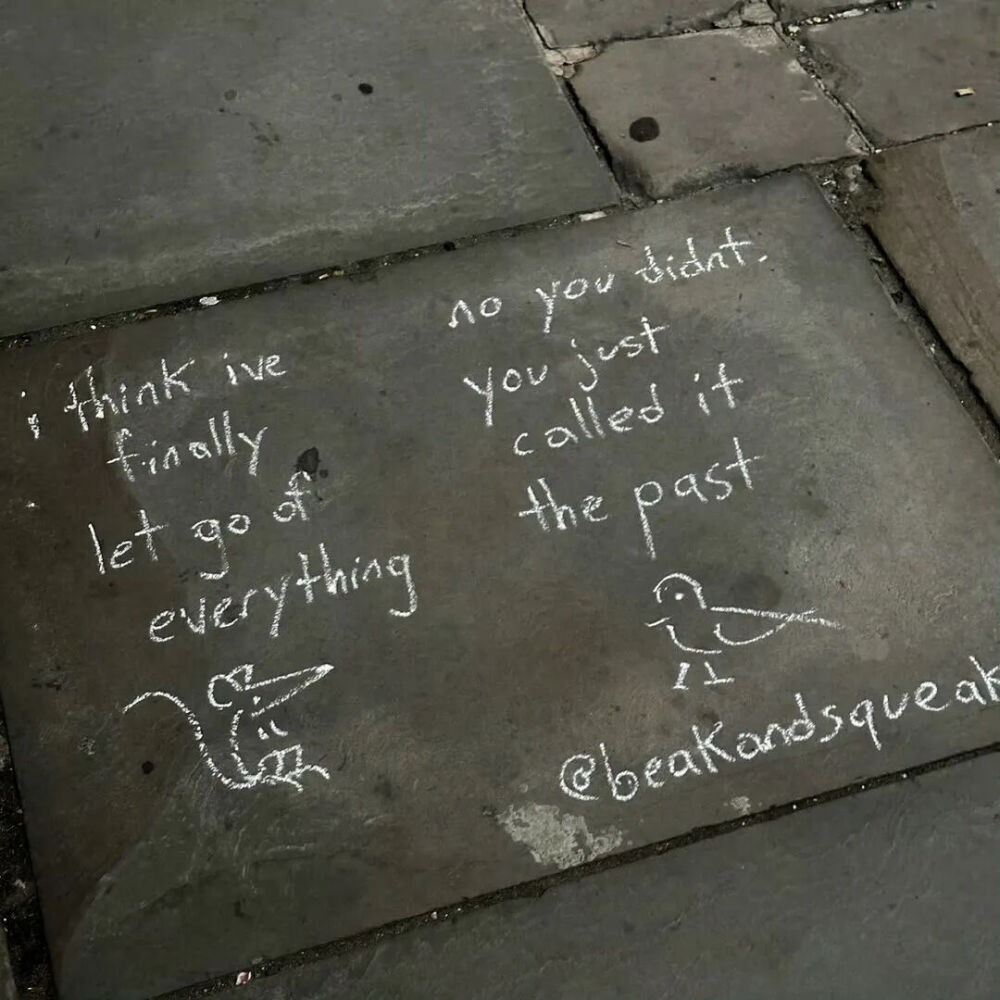 i think ive
finally
let go of
everything
no you didnt.
you just
called it
the past
@beakandsqueak